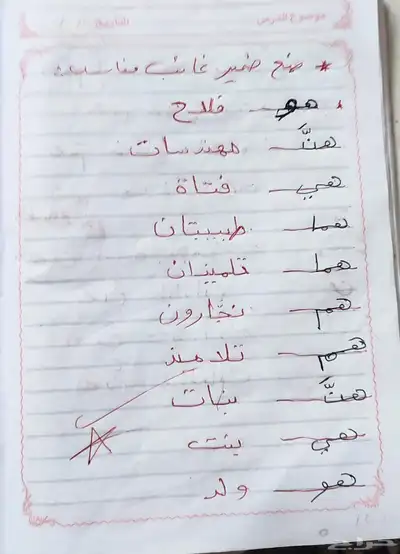 موضوع الدرس التاريخ / /
* ضع ضمير غائب مناسب
هو فلاح
هنَّ مهندسات
هي فتاة
هما طبيبتان
هما تلميذان
هم نجّارون
هم تلاميذ
هنَّ بنات
هي بنت
هو ولد
حراج